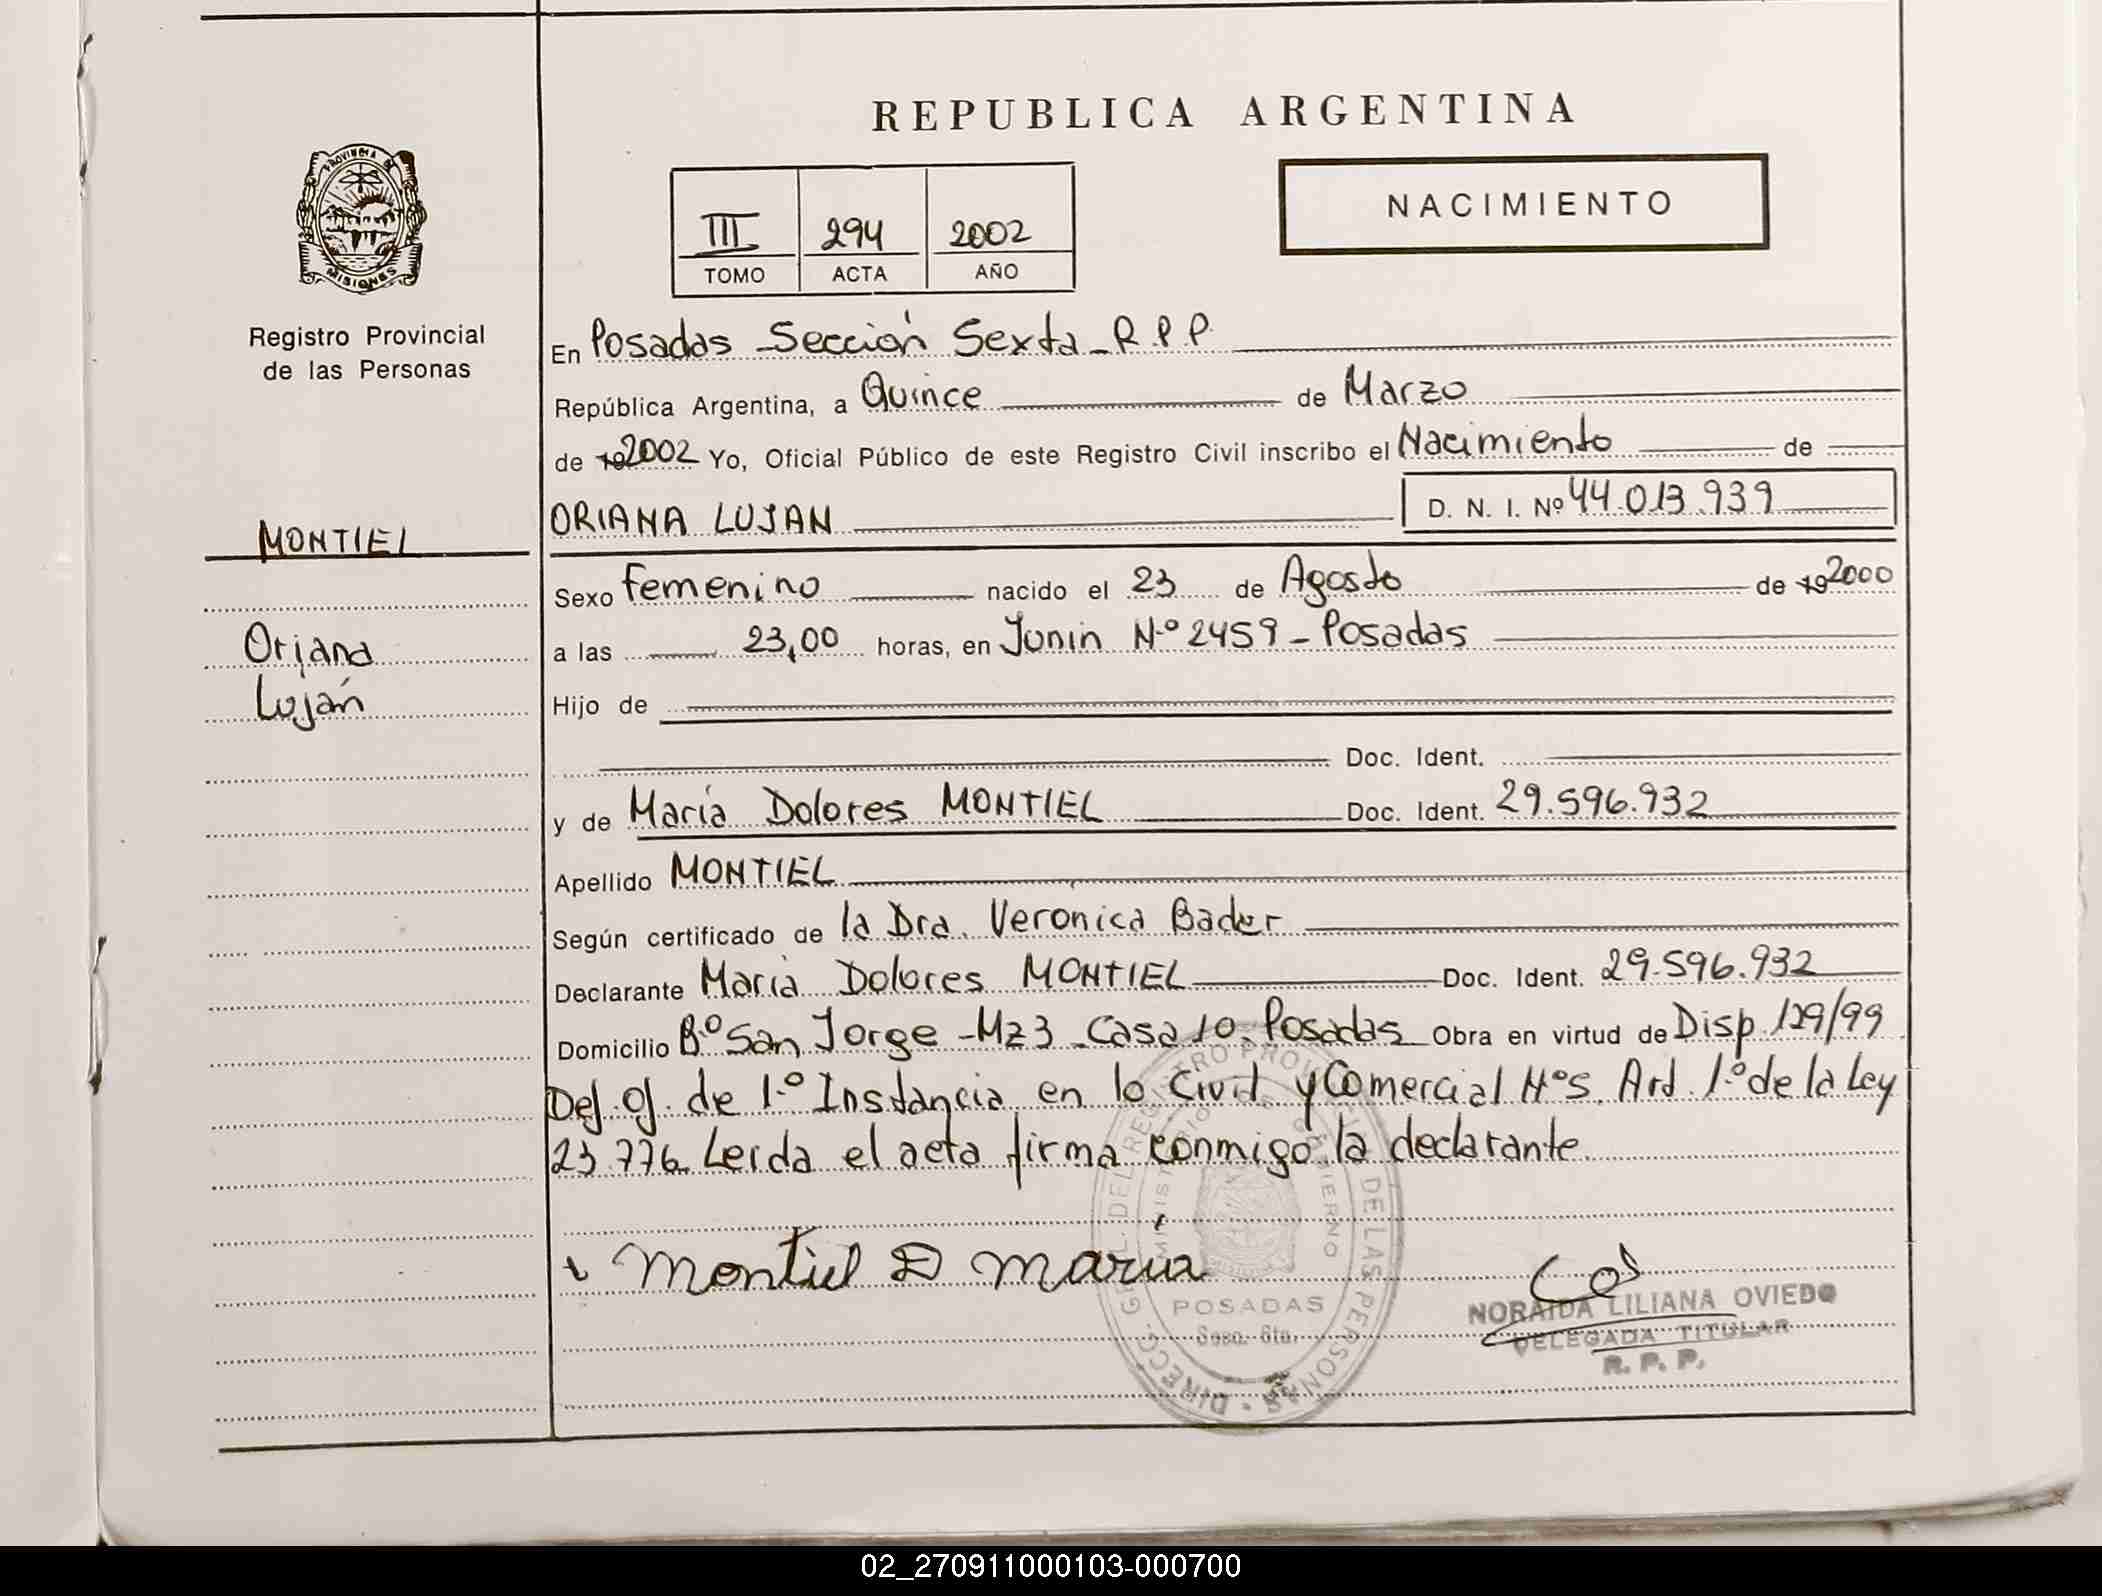 REPUBLICA ARGENTINA
PROVINCIA DE
MISIONES
III 294 2002
TOMO ACTA AÑO
NACIMIENTO
Registro Provincial
de las Personas
MONTIEL
Oriana
Luján
En Posadas - Sección Sexta - R.P.P.
República Argentina, a Quince de Marzo
de 192002 Yo, Oficial Público de este Registro Civil inscribo el Nacimiento de
ORIANA LUJAN D. N. I. Nº 44.013.939
Sexo Femenino nacido el 23 de Agosto de 192000
a las 23,00 horas, en Junin N.º 2459 - Posadas
Hijo de
Doc. Ident.
y de María Dolores MONTIEL Doc. Ident. 29.596.932
Apellido MONTIEL
Según certificado de la Dra. Veronica Bader
Declarante María Dolores MONTIEL Doc. Ident. 29.596.932
Domicilio Bº San Jorge - Mz 3 - Casa 10. Posadas Obra en virtud de Disp. 129/99
Def. Of. de 1º Instancia en lo Civil y Comercial Nº 5. Art. 1.º de la Ley
23.776. Leída el acta firma conmigo la declarante.
Montiel D María
DIRECC. GRAL. DEL REGISTRO PROVINCIAL DE LAS PERSONAS
MINISTERIO DE GOBIERNO
POSADAS
Secc. 6ta.
NORAIDA LILIANA OVIEDO
DELEGADA TITULAR
R. P. P.
02_270911000103-000700